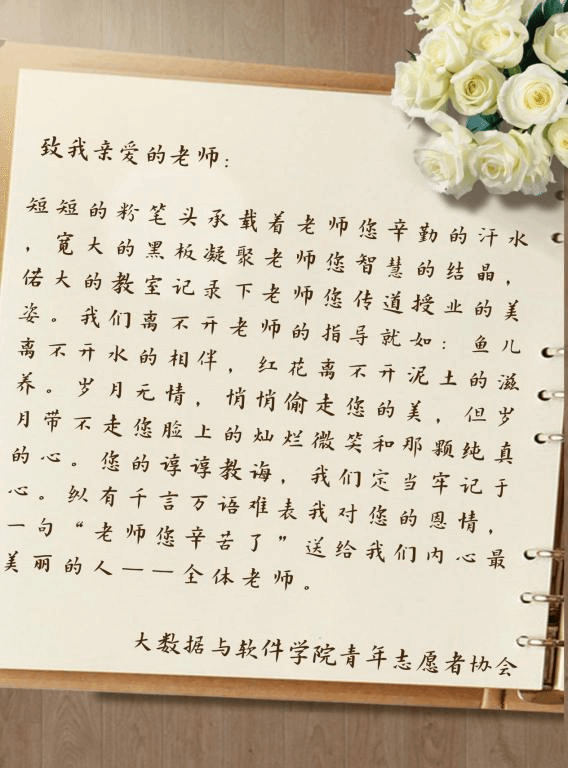 致我亲爱的老师：
短短的粉笔头承载着老师您辛勤的汗水
，宽大的黑板凝聚老师您智慧的结晶，
偌大的教室记录下老师您传道授业的美
姿。我们离不开老师的指导就如：鱼儿
离不开水的相伴，红花离不开泥土的滋
养。岁月无情，悄悄偷走您的美，但岁
月带不走您脸上的灿烂微笑和那颗纯真
的心。您的谆谆教诲，我们定当牢记于
心。纵有千言万语难表我对您的恩情，
一句“老师您辛苦了”送给我们内心最
美丽的人——全体老师。
大数据与软件学院青年志愿者协会